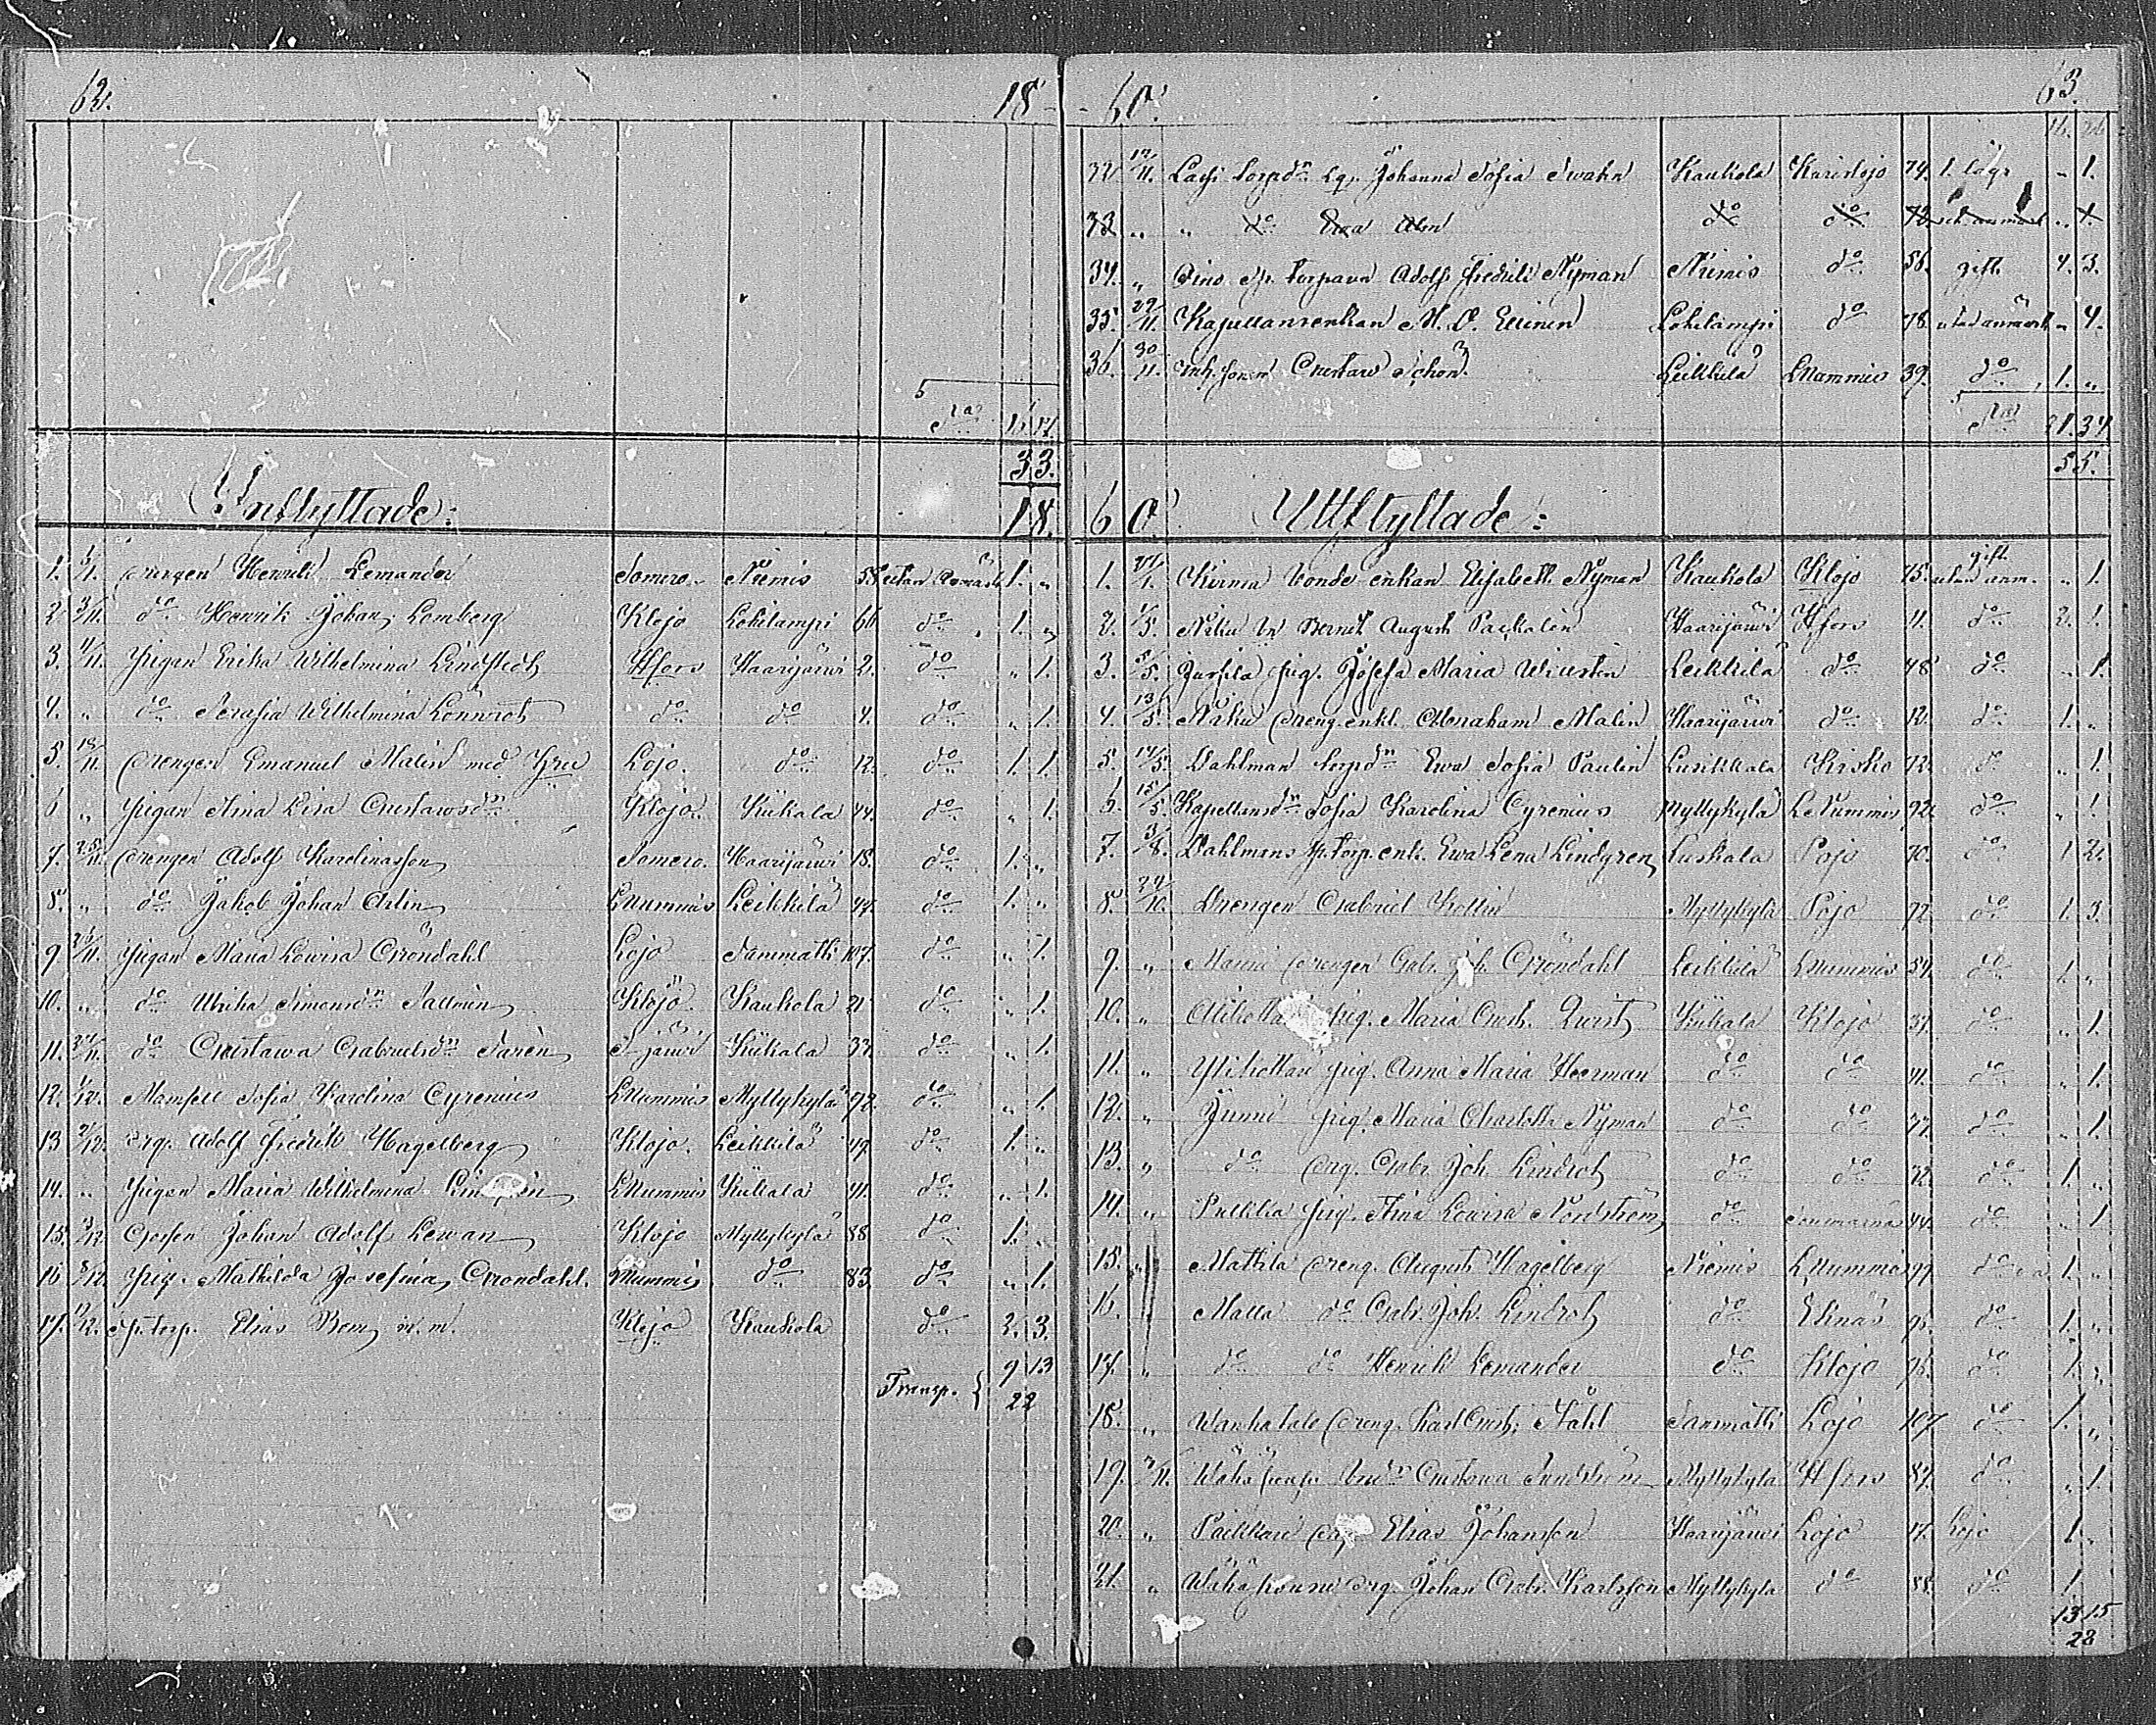 62.
18
Sa 16. 17.
33.
Inflyttade:
18
1. 1/1. Drengen Henrik Lemander Somero Niemis utan Anmärk 1. "
2. 3/11. do Henrik Johan Lemberg Klojo Lohilampi 66 do 1. "
3. 4/11. Pigan Erika Wilhelmina Lindstedt Hfors Haarijärwi 2. do " 1.
4. " do Serafia Wilhelmina Lönnrot do do 4. do " 1.
5. 18/11. Drengen Emanuel Malin med Hru Lojo. do 12. do 1. 1.
6 " Pigan Stina Lisa Gustawsdr Klojo. Kiikala 44. do " 1.
7. 25/11. Drengen Adolf Karolinasson Somero. Haarijärwi 18. do 1. "
8. " do Jakob Johan Arlin LNummis Leikkilä 47. do 1. "
9 26/11. Pigan Maria Lowisa Gröndahl Lojo Sammatti 107. do " 1.
10. " do Ulrika Simonsdr Sallmén Klojo. Kaukola 21 do " 1.
11. 27/11. do Gustawa Gabrielsdr Sarén S-järwi Kiikala 33. do " 1.
12. 1/12. Mamsell Sofia Karolina Cyrenius LNummis Myllykylä 92. do " 1.
13 2/12. Drg. Adolf Fredrik Hagelberg Klojo. Leikkilä 49. do 1. "
14. " Pigan Maria Wilhelmina LNummis Kiikala 41. do " 1.
15. 3/12 Gossen Johan Adolf Lewan Klojo Myllykylä 88 do 1. "
16 8/12 Pig. Mathilda Josefina Gröndahl. Nummis do 83. do " 1.
17. 17/12. Sp. torp. Elias Bom m.m. Klojo Kaukola do 2. 3.
Transp. { 9 13
22
60.
63.
32 17/11. Lassi torpdr Pig. Johanna Sofia Swahn Kaukola Karislojo 74. 1. lägr " 1.
33 " " do Ewa Alen do do 72 ut anmärk " 1.
34. " Sp. torparen Adolf Fredrik Nyman Niemis do 56. gift 4. 3.
35. 29/11. Kapellansenkan M. L. Ellinen Lohilampi do 78. utan anmärk " 4.
36. 30/11. Inh. sonen Gustaw Schön Leikkilä LNummis 39. do 1. "
Sa 21. 34.
55.
60 Utflyttade:
1. 27/1. Bonde enkan Elisabeth Nyman Kaukola Klojo 75. gift utan anm. " 1.
2. 1/5. Bernh. August Packalén Haarijärwi Hfors 11. do 2. 1.
3. /5. Jussila Pig. Josefa Maria Leikkilä do 48 do " 1.
4. 13/5. Näku Dreng. enkl. Abraham Malin Haarijärwi do 12. do 1. "
5. 14/5. Dahlman torpdr Ewa Sofia Paulin Luskkala Kisko 72. do " 1.
6. 15/5. Kapellansdr Sofia Karolina Cyrenius Myllykylä LNummis 92. do " 1.
7. 3/8. Dahlmans Sp. torp. enk. Ewa Lena Lindgren Luskala Pojo 70. do 1 2.
8. 24/10. Drengen Gabriel Kollin Myllykylä Pojo 72 do 1. 3.
9. " Manni Drengen Gabr. Joh. Gröndahl Leikkilä LNummis 54. do 1. "
10. " pig. Maria Gust. Qwist Kiikala Klojo 37. do " 1.
11. " pig. Anna Maria Heerman do do 41. do " 1.
12. " Junni pig. Maria Charlotta Nyman do do 77. do " 1.
13. " do Drg. Gabr. Joh. Lindroth do do 32. do 1. "
14. " Pullilia pig. Stina Lowisa Nordström do 44. do " 1
15. " Mattila Dreng. August Hagelberg Niemis LNummis 99 do 1. "
16. " Malla do Gabr. Joh. Lindroth do Eknäs 96. do 1. "
17. " do do Henrik Lemander do Klojo 96. do 1. "
18. " Wanhatalo Dreng. Karl Gust. Ståhl Sammatti Lojo 107 do 1. "
19. 2/11. Gustawa Sundström Myllykylä Hfors 87. do " 1.
20. " Packkari Drg. Elias Johansson Haarijärwi Lojo 17. Lojo 1. "
21. " Drg. Johan Gabr. Karlsson Myllykylä do 88. do 1
13 15
28